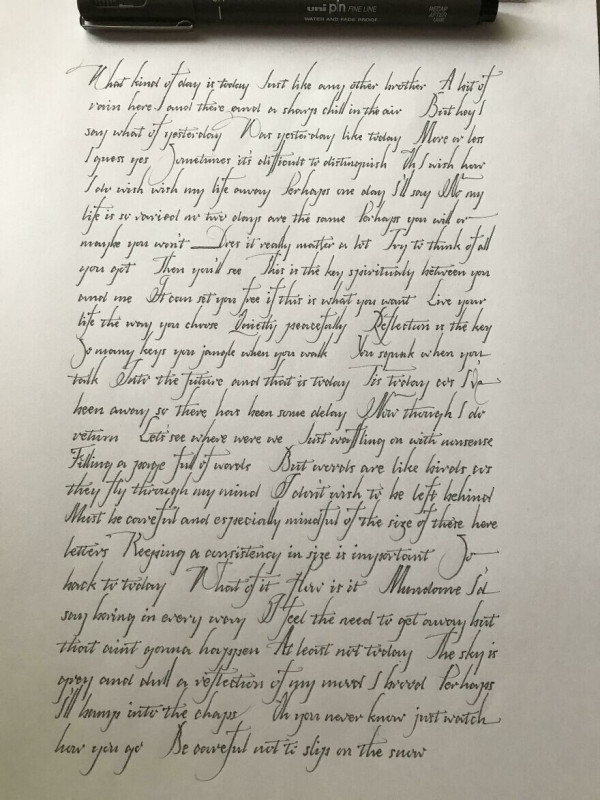 uni pin FINE LINE
WATER AND FADE PROOF
RECAP AFTER USE
What kind of day is today Just like any other brother A bit of
rain here I and there and a sharp chill in the air But hey I
say what of yesterday Was yesterday like today More or less
I guess yes Sometimes it's difficult to distinguish Oh I wish how
I do wish wish my life away Perhaps one day I'll say No my
life is so varied no two days are the same Perhaps you will or
maybe you won't Does it really matter a lot Try to think of all
you got Then you'll see This is the key spiritualy between you
and me It can set you free if this is what you want Live your
life the way you choose Quietly peacefully Reflection is the key
So many keys you jangle when you walk You squeak when you
talk Into the future and that is today Tis today as I've
been away so there has been some delay Now though I do
return Let's see where were we Just waffling on with nonsense
Filling a page full of words But words are like birds as
they fly through my mind I don't wish to be left behind
Must be careful and especially mindful of the size of these here
letters Keeping a consistency in size is important So
back to today What of it How is it Mundane I'd
say boring in every way I feel the need to get away but
that aint gonna happen At least not today The sky is
grey and dull a reflection of my mood I brood Perhaps
I'll bump into the chaps Oh you never know just watch
how you go Be careful not to slip on the snow